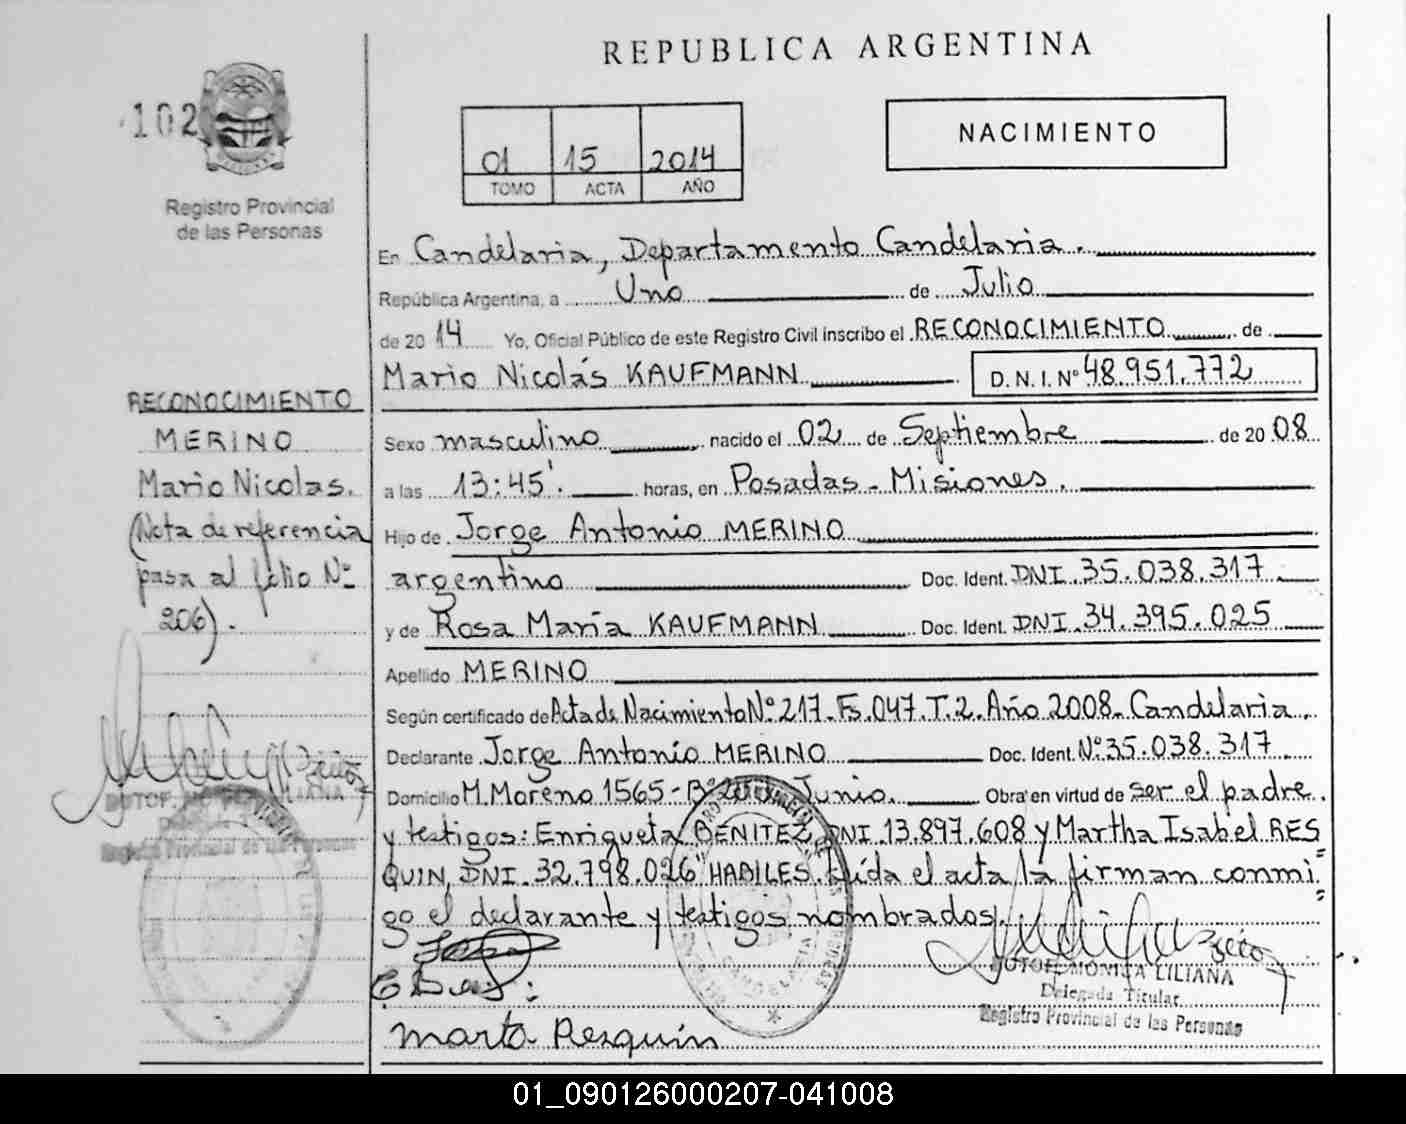 REPUBLICA ARGENTINA
102
01 15 2014
TOMO ACTA AÑO
NACIMIENTO
Registro Provincial
de las Personas
En Candelaria, Departamento Candelaria.
República Argentina, a Uno de Julio
de 2014 Yo, Oficial Público de este Registro Civil inscribo el RECONOCIMIENTO de
Mario Nicolás KAUFMANN D.N.I.Nº 48.951.772
Sexo masculino nacido el 02 de Septiembre de 2008
a las 13:45'. horas, en Posadas - Misiones.
Hijo de Jorge Antonio MERINO
argentino Doc. Ident. DNI.35.038.317
y de Rosa María KAUFMANN Doc. Ident. DNI.34.395.025
Apellido MERINO
Según certificado de Acta de Nacimiento Nº 217-Fs.047.T.2.Año 2008-Candelaria.
Declarante Jorge Antonio MERINO Doc. Ident. Nº.35.038.317
Domicilio M.Moreno 1565- Junio. Obra en virtud de ser el padre.
y testigos: Enriqueta BENITEZ, DNI.13.897.608 y Martha Isabel RES=
QUIN, DNI.32.798.026 "HABILES. Leída el acta la firman conmi=
go el declarante y testigos nombrados.
Marta Resquin
MONICA LILIANA
Delegada Titular
Registro Provincial de las Personas
RECONOCIMIENTO
MERINO
Mario Nicolas.
(Nota de referencia
pasa al folio Nº
206).
LILIANA
Registro Provincial de las Personas
CANDELARIA
01_090126000207-041008